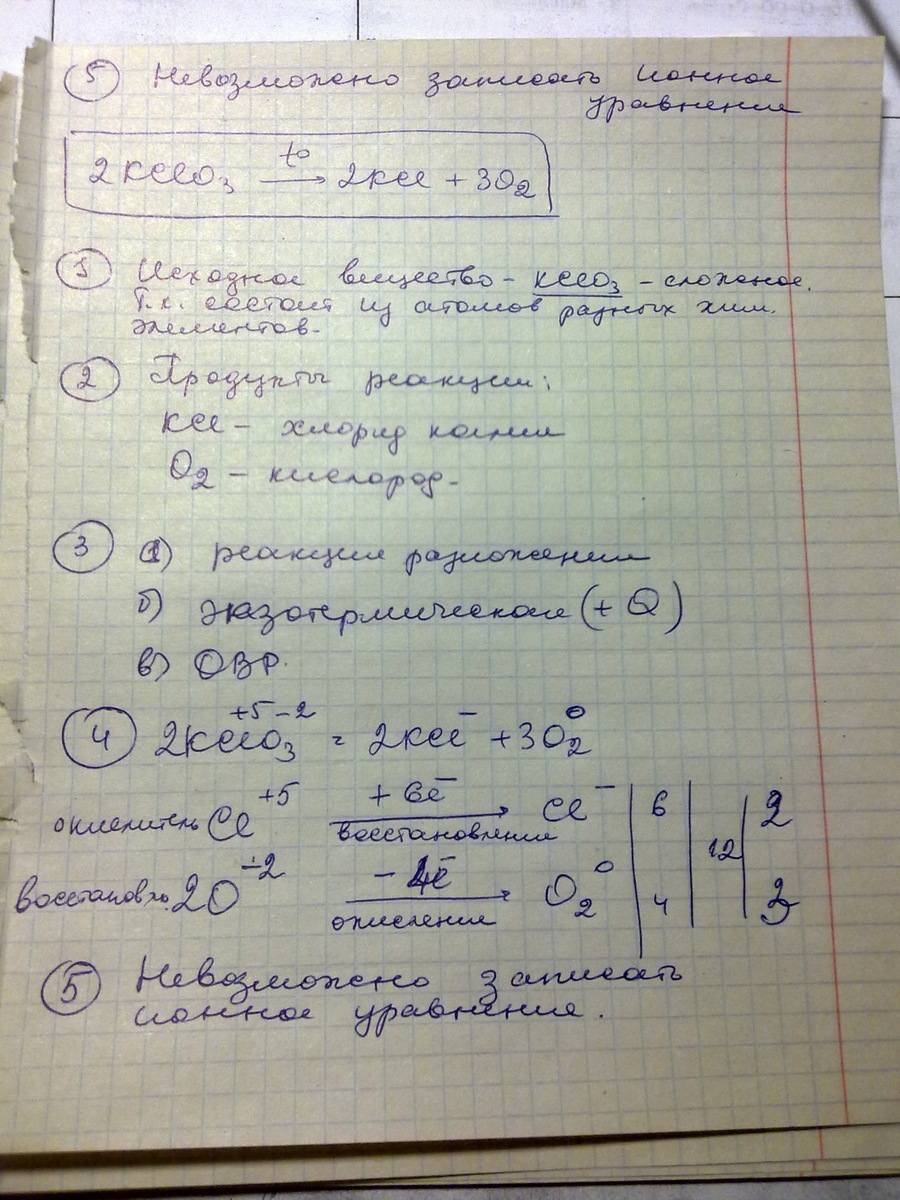 5 Невозможно записать ионное
уравнение
2KClO3 t° → 2KCl + 3O2
1 Исходное вещество - KClO3 - сложное.
Т.к. состоит из атомов разных хим.
элементов.
2 Продукты реакции:
KCl - хлорид калия
O2 - кислород.
3 а) реакция разложения
б) экзотермическая (+ Q)
в) ОВР.
+5 -2 - 0
4 2KClO3 = 2KCl + 3O2
окислитель Cl+5 + 6ē → Cl- 6 2
восстановление
12
восстановл. 2O-2 - 4ē → O2 0 4 3
окисление
5 Невозможно записать
ионное уравнение.